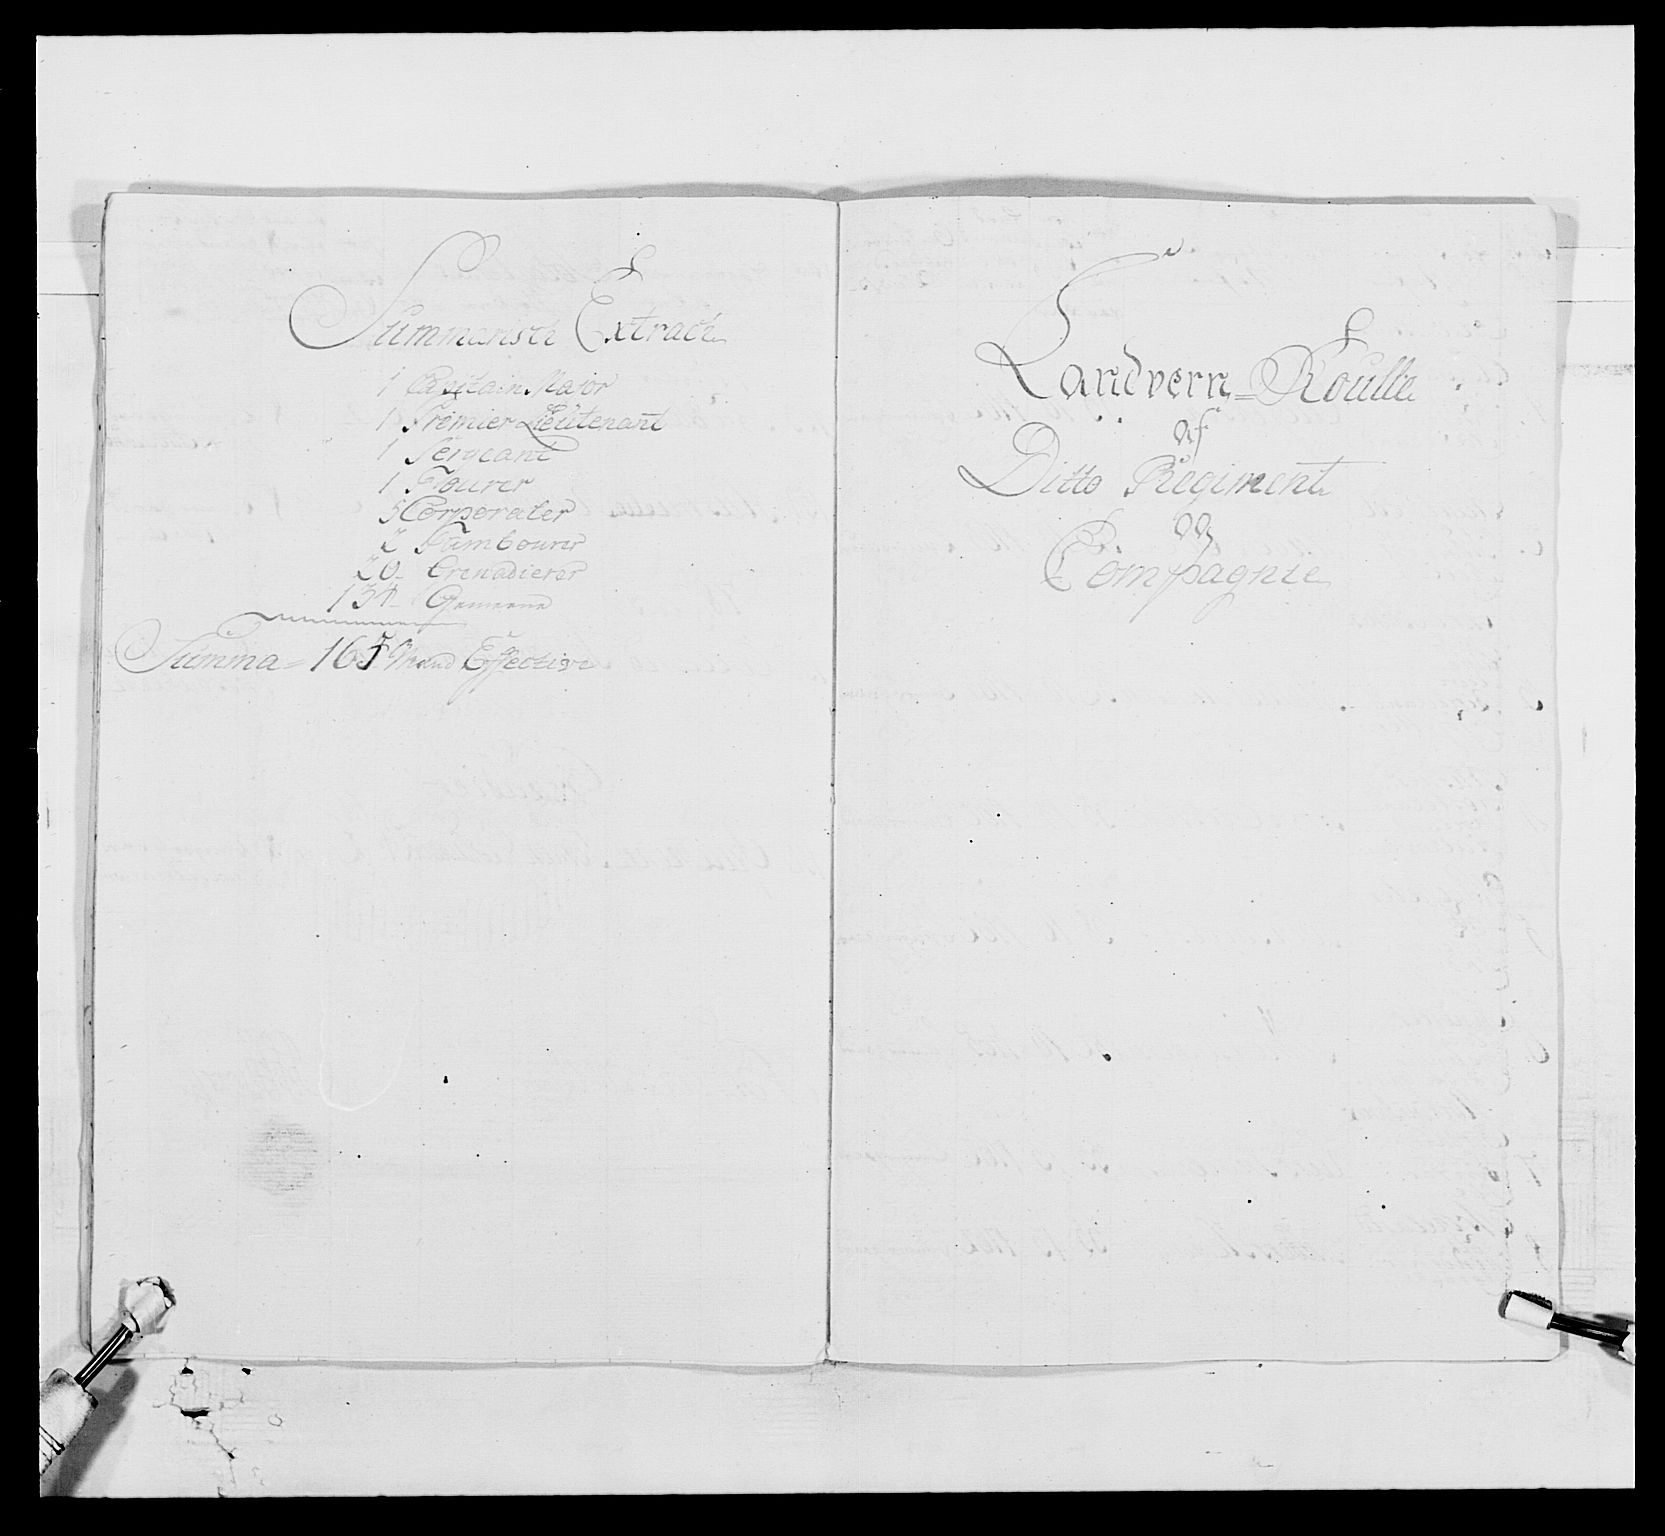 Summarisch Extract
1 Capitain Major
1 Premier Lieutenant
1 Sergeant
1 Fourer
5 Corporaler
2 Tambourer
20 Grenadierer
134 Gemeene
Summa = 165 Mand Effective
Landvern = Roulle
af
Ditto Regiment
og
Compagnie